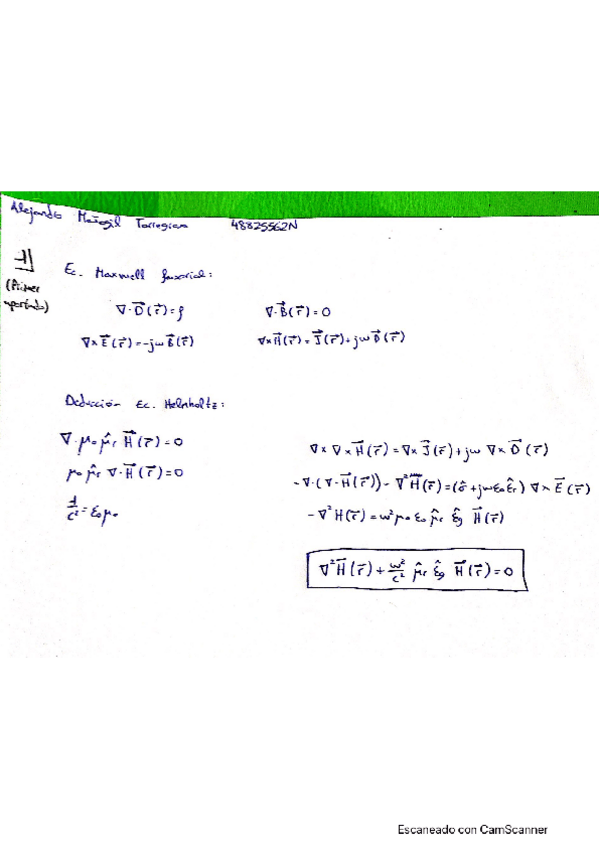 Alejandro Mañogil Torregrosa 48825562N
1]
(Primer apartado)
Ec. Maxwell fasorial:
∇·D⃗(r⃗)=ρ ∇·B⃗(r⃗)=0
∇×E⃗(r⃗)=-jωB⃗(r⃗) ∇×H⃗(r⃗)=J⃗(r⃗)+jωD⃗(r⃗)
Deducción Ec. Helmholtz:
∇·μ₀ μ̂r H⃗(r⃗)=0
μ₀ μ̂r ∇·H⃗(r⃗)=0
1/c²=ε₀μ₀
∇×∇×H⃗(r⃗)=∇×J⃗(r⃗)+jω ∇×D⃗(r⃗)
-∇·(∇·H⃗(r⃗))-∇²H⃗(r⃗)=(σ̂+jωε₀ε̂r) ∇×E⃗(r⃗)
-∇²H(r⃗)=ω²μ₀ ε₀ μ̂r ε̂g H⃗(r⃗)
∇²H⃗(r⃗)+ω²/c² μ̂r ε̂g H⃗(r⃗)=0
Escaneado con CamScanner